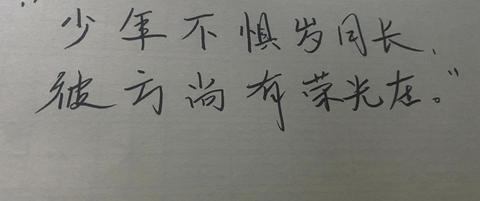 "少年不惧岁月长,
彼方尚有荣光在。"